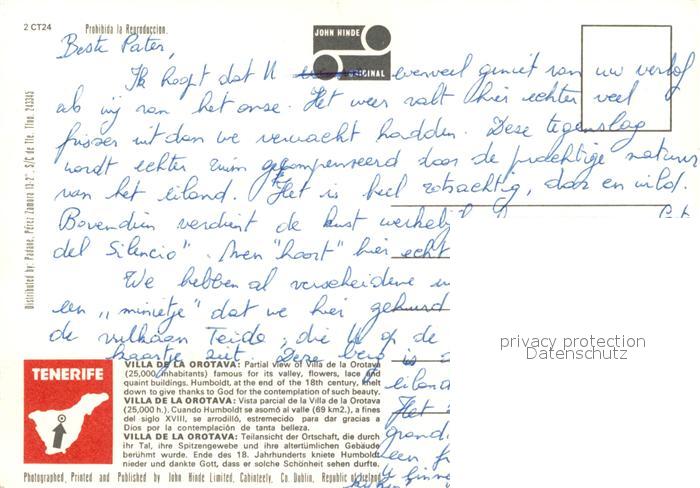 2 CT24
Prohibida la Reproduccion.
JOHN HINDE
ORIGINAL
Beste Pater,
Ik hoopt dat U evenveel geniet van uw verlof
als wij van het onze. Het weer valt hier echter veel
frisser uit dan we verwacht hadden. Deze tegenslag
wordt echter ruim gekompenseerd door de prachtige natuur
van het eiland. Het is heel rotsachtig, door en wild.
Bovendien verdient de kust werkelij
del Silencio". Men "hoort" hier echt
We hebben al verscheidene
een "minietje" dat we hier gehuurd
de vulkaan Teide, die U op de
kaartje ziet. Deze berg is
eiland
Het
grand
een
Distributed by: Padone, Pérez Zamora 13-2°, S/C de Tfe. Tfno. 243345
privacy protection
Datenschutz
TENERIFE
VILLA DE LA OROTAVA: Partial view of Villa de la Orotava
(25,000 inhabitants) famous for its valley, flowers, lace and
quaint buildings. Humboldt, at the end of the 18th century, knelt
down to give thanks to God for the contemplation of such beauty.
VILLA DE LA OROTAVA: Vista parcial de la Villa de la Orotava
(25,000 h.). Cuando Humboldt se asomó al valle (69 km2.), a fines
del siglo XVIII, se arrodilló, estremecido para dar gracias a
Dios por la contemplación de tanta belleza.
VILLA DE LA OROTAVA: Teilansicht der Ortschaft, die durch
ihr Tal, ihre Spitzengewebe und ihre altertümlichen Gebäude
berühmt wurde. Ende des 18. Jahrhunderts kniete Humboldt
nieder und dankte Gott, dass er solche Schönheit sehen durfte.
Photographed, Printed and Published by John Hinde Limited, Cabinteely, Co. Dublin, Republic of Ireland